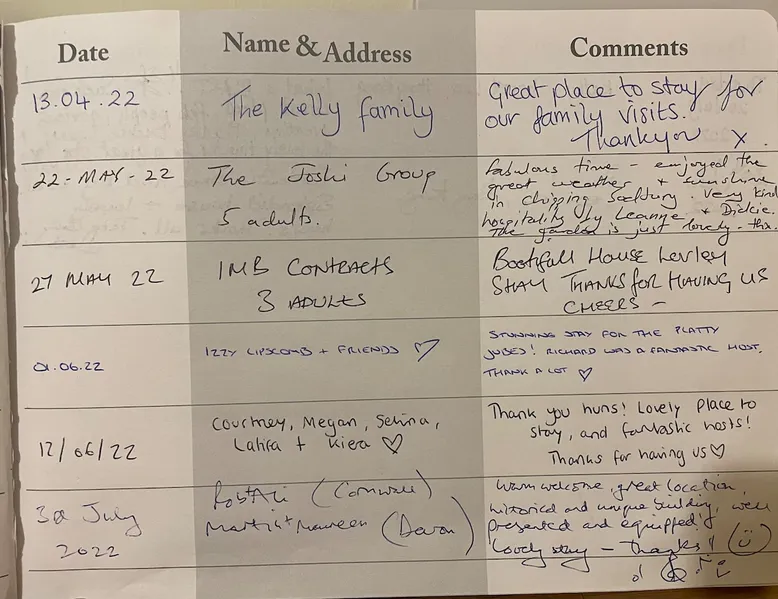 Date Name & Address Comments
13.04.22 The Kelly family Great place to stay for
our family visits.
Thankyou x
22-MAY-22 The Joshi Group fabulous time - enjoyed the
great weather + sunshine
5 adults. in chipping Sodbury. Very kind
hospitality by Leanne + Dickie.
The garden is just lovely - thx.
27 MAY 22 IMB CONTRACTS Bootifall House Lovley
3 ADULTS STAY THANKS FOR HAVING US
CHEERS -
01.06.22 IZZY LIPSCOMB + FRIENDS ♡ STUNNING STAY FOR THE PLATTY
JUBES! RICHARD WAS A FANTASTIC HOST.
THANK A LOT ♡
12/06/22 Courtney, Megan, Selina, Thank you huns! Lovely place to
Latifa + Kiera ♡ stay, and fantastic hosts!
Thanks for having us ♡
3rd July Rob + Ali (Cornwall) Warm welcome, great location,
2022 Martin + Maureen (Devon) historical and unique building, well
presented and equipped!
Lovely stay - thanks!!